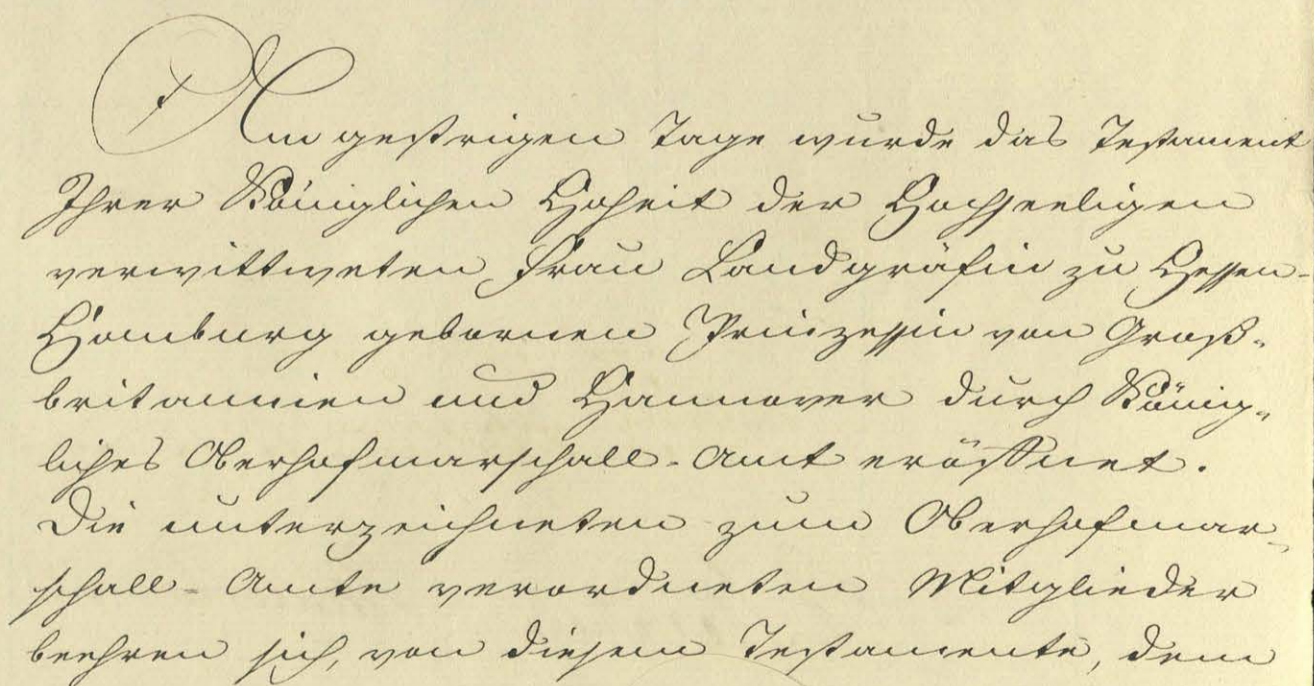 Am gestrigen Tage wurde das Testament
Ihrer Königlichen Hoheit der Hochseeligen
verwittweten Frau Landgräfin zu Hessen-
Homburg gebornen Prinzessin von Groß-
britannien und Hannover durch König-
liches Oberhofmarschall-Amt eröffnet.
Die unterzeichneten zum Oberhofmar-
schall-Amte verordneten Mitglieder
beehren sich, von diesem Testamente, dem